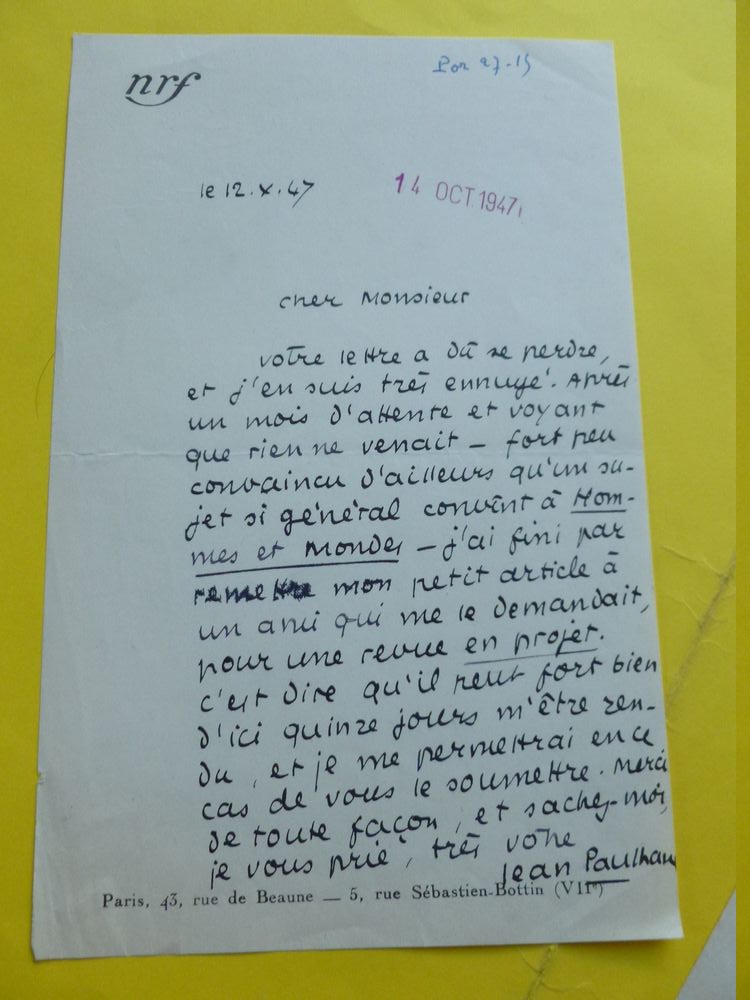 nrf
le 12.X.47
14 OCT. 1947
cher Monsieur
votre lettre a dû se perdre,
et j'en suis très ennuyé. Après
un mois d'attente et voyant
que rien ne venait – fort peu
convaincu d'ailleurs qu'un su-
jet si général convînt à Hom-
mes et Mondes – j'ai fini par
remettre mon petit article à
un ami qui me le demandait,
pour une revue en projet.
c'est dire qu'il peut fort bien
d'ici quinze jours m'être ren-
du, et je me permettrai en ce
cas de vous le soumettre. Merci
de toute façon, et sachez-moi,
je vous prie, très vôtre
Jean Paulhan
Paris, 43, rue de Beaune — 5, rue Sébastien-Bottin (VIIe)